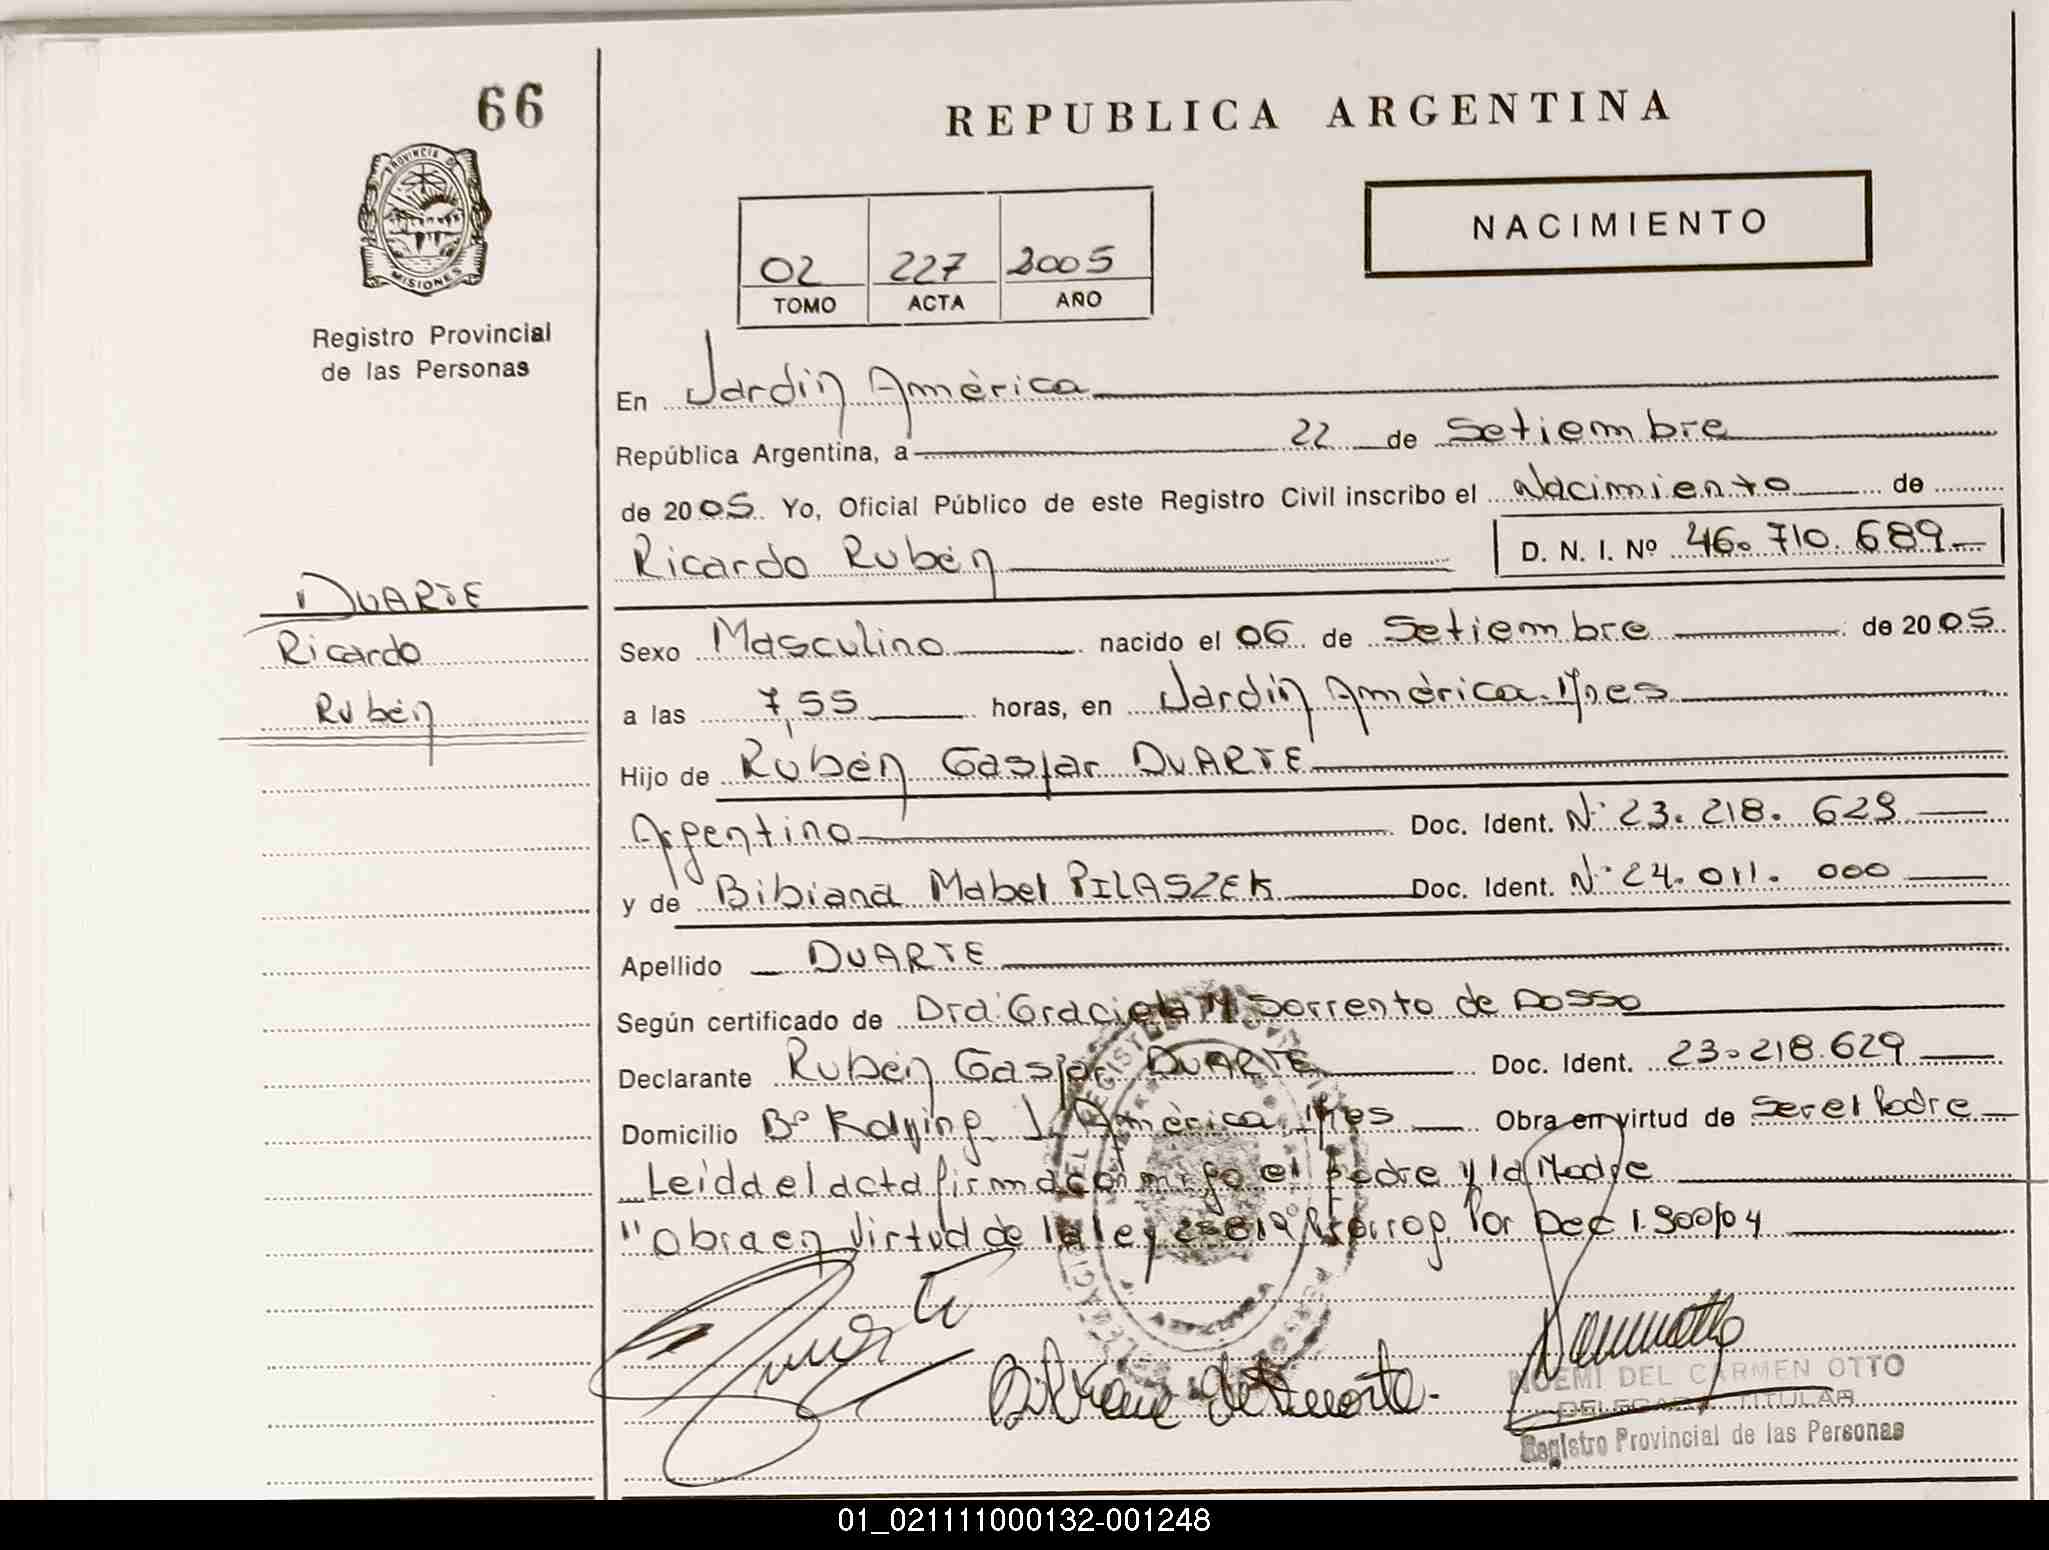 66
REPUBLICA ARGENTINA
PROVINCIA DE
MISIONES
NACIMIENTO
02 227 2005
TOMO ACTA AÑO
Registro Provincial
de las Personas
En Jardín América
República Argentina, a 22 de Setiembre
de 2005 Yo, Oficial Público de este Registro Civil inscribo el Nacimiento de
Ricardo Rubén D. N. I. Nº 46.710.689
DUARTE
Ricardo
Rubén
Sexo Masculino nacido el 06 de Setiembre de 2005
a las 7,55 horas, en Jardín América. Mnes
Hijo de Rubén Gaspar DUARTE
Argentino Doc. Ident. Nº 23.218.629
y de Bibiana Mabel PILASZEK Doc. Ident. Nº 24.011.000
Apellido DUARTE
Según certificado de Dra. Graciela M Sorrento de Dosso
Declarante Rubén Gaspar DUARTE Doc. Ident. 23.218.629
Domicilio Bº J. América, Mnes Obra en virtud de Ser el Padre
Leída el acta firma conmigo el padre y la Madre
"Obra en Virtud de la ley 25819 Prorrog. Por Dec 1.900/04
NOEMI DEL CARMEN OTTO
DELEGADA TITULAR
Registro Provincial de las Personas
01_021111000132-001248